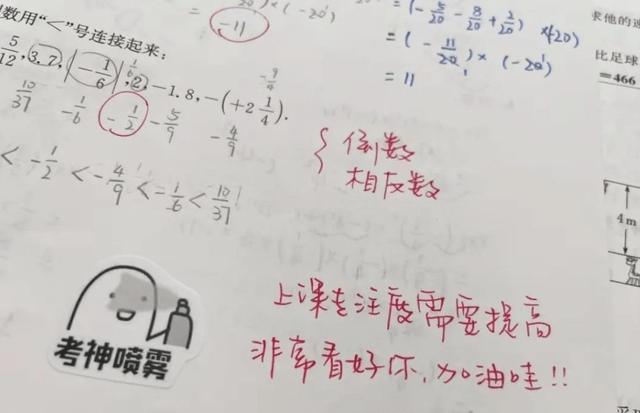 数用“<”号连接起来:
5/12, 3.7, |-1/6|, 2, -1.8, -(+2 1/4).
1/6
-9/4
10/37 -1/6 -1/2 -5/9 -4/9
< -1/2 < -4/9 < -1/6 < 10/37
-11
= (-5/20 - 8/20 + 2/20) × (-20)
= (-11/20) × (-20)
= 11
倒数
相反数
求他的速
比足球
=466
4m
上课专注度需要提高
非常看好你,加油哇!!
考神喷雾